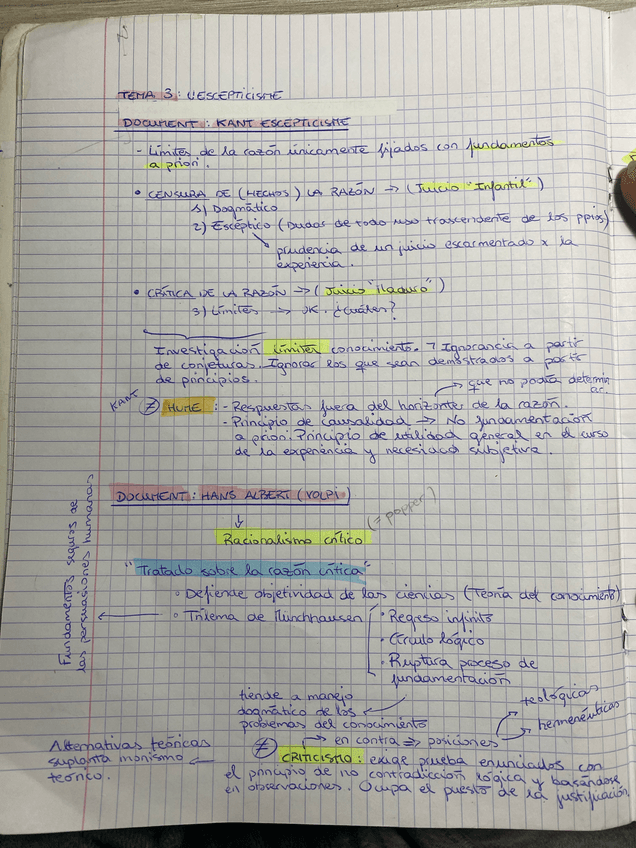 TEMA 3: L'ESCEPTICISME
DOCUMENT: KANT ESCEPTICISME
- Límites de la razón únicamente fijados con fundamentos
a priori.
• CENSURA DE (HECHOS) LA RAZÓN → (Juicio "Infantil")
1) Dogmático
2) Escéptico (Dudas de todo uso trascendente de los ppios)
prudencia de un juicio escarmentado x la
experiencia.
• CRÍTICA DE LA RAZÓN → (Juicio "Maduro")
3) Límites → OK. ¿Cuáles?
Investigación límites conocimiento. 7 Ignorancia a partir
de conjeturas. Ignorar los que sean demostrados a partir
de principios.
→ que no podía determin
ar.
KANT ≠ HUME: - Respuestas fuera del horizonte de la razón.
- Principio de causalidad → No fundamentación
a priori. Principio de utilidad general en el curso
de la experiencia y necesidad subjetiva.
DOCUMENT: HANS ALBERT (VOLPI)
↓
Racionalismo crítico (= popper)
"Tratado sobre la razón crítica"
• Defiende objetividad de las ciencias (Teoría del conocimiento)
• Trilema de Münchhausen
• Regreso infinito
• Círculo lógico
• Ruptura proceso de
fundamentación
Fundamentos seguros de
las persuasiones humanas
tiende a manejo
dogmático de los
problemas del conocimiento
→ en contra ⇒ posiciones
teológicas
hermenéuticas
≠ CRITICISMO: exige prueba enunciados con
el principio de no contradicción lógica y basándose
en observaciones. Ocupa el puesto de la justificación.
Alternativas teóricas
suplanta monismo
teórico.